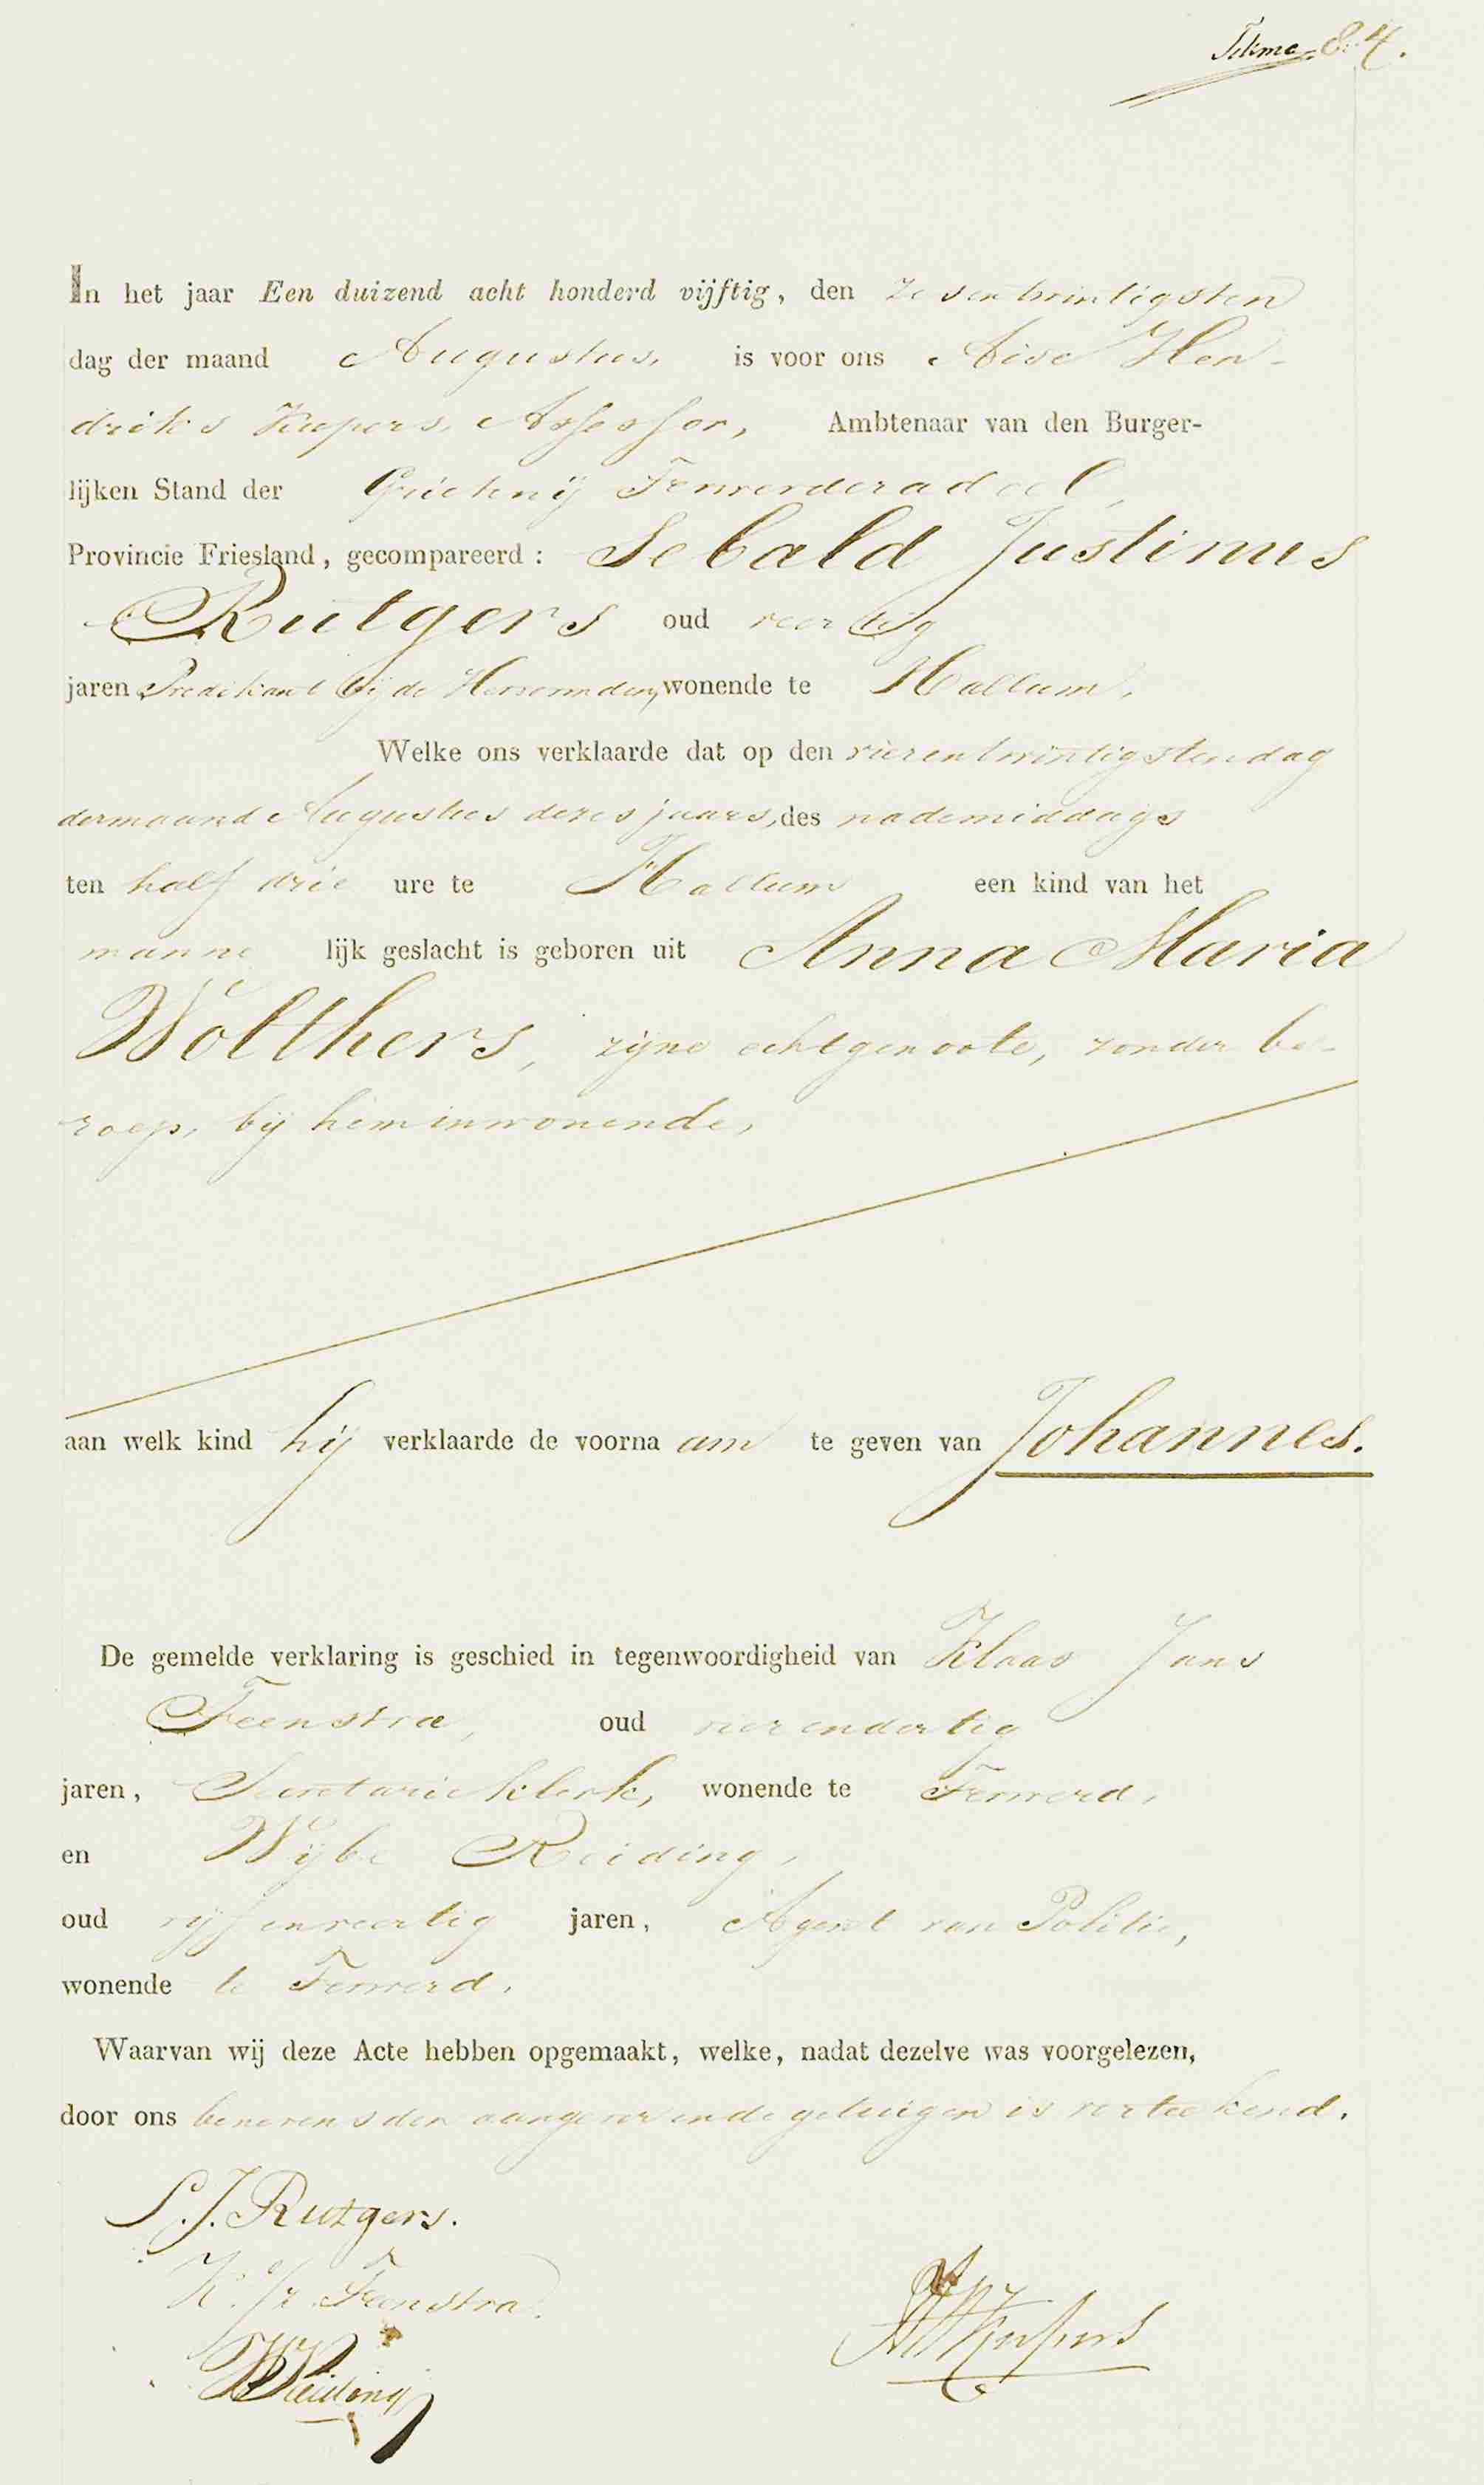 84.
In het jaar Een duizend acht honderd vijftig, den zesentwintigsten
dag der maand Augustus, is voor ons Aise Hen-
driks Kupers, Assessor, Ambtenaar van den Burger-
lijken Stand der Grietenij Ferwerderadeel,
Provincie Friesland, gecompareerd: Sebald Justinus
Rutgers oud veertig
jaren, Predikant bij de Hervormden, wonende te Hallum,
Welke ons verklaarde dat op den vierentwintigsten dag
der maand Augustus dezes jaars, des nademiddags
ten half drie ure te Hallum een kind van het
manne lijk geslacht is geboren uit Anna Maria
Wolthers, zijne echtgenoote, zonder be-
roep, bij hem inwonende,
aan welk kind hij verklaarde de voorna am te geven van Johannes.
De gemelde verklaring is geschied in tegenwoordigheid van Klaas Jans
Feenstra, oud vierendertig
jaren, Secretarie klerk, wonende te Ferwerd,
en Wijbe Reiding,
oud vijfenveertig jaren, Agent van Politie,
wonende te Ferwerd.
Waarvan wij deze Acte hebben opgemaakt, welke, nadat dezelve was voorgelezen,
door ons benevens den aangever en de getuigen is verteekend.
S. J. Rutgers.
K. Jz. Feenstra.
AHKupers
WReiding